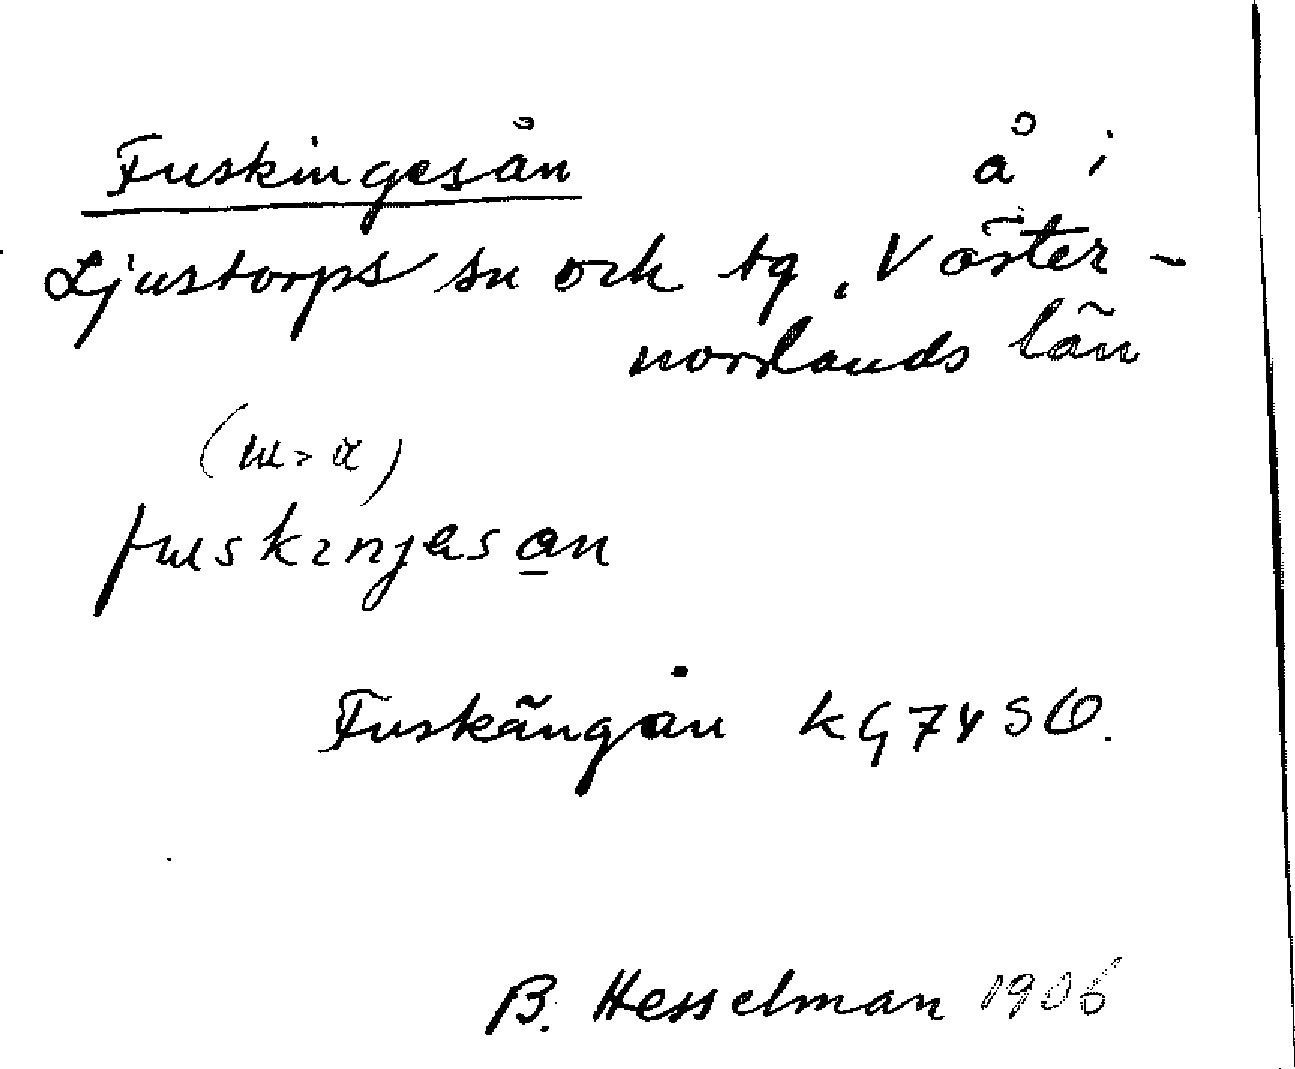 Fuskingesån å i
Ljustorps sn och tg, Väster-
norrlands län
Fuskängån KG 74 SO.
B. Hesselman 1906